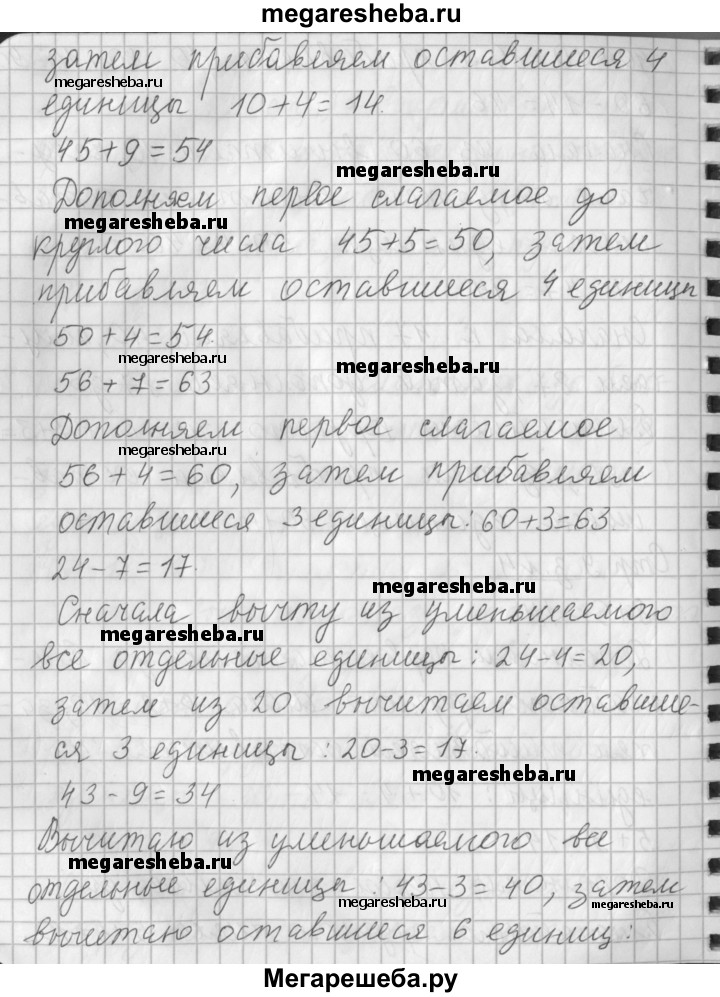 megaresheba.ru
затем прибавляем оставшиеся 4
megaresheba.ru
единицы 10+4=14.
45+9=54
megaresheba.ru
Дополняем первое слагаемое до
megaresheba.ru
круглого числа 45+5=50, затем
прибавляем оставшиеся 4 единицы
50+4=54.
megaresheba.ru
megaresheba.ru
56+7=63
Дополняем первое слагаемое
megaresheba.ru
56+4=60, затем прибавляем
оставшиеся 3 единицы: 60+3=63
24-7=17.
megaresheba.ru
Сначала вычту из уменьшаемого
megaresheba.ru
все отдельные единицы: 24-4=20,
затем из 20 вычитаем оставшие-
ся 3 единицы: 20-3=17.
megaresheba.ru
43-9=34
Вычитаю из уменьшаемого все
megaresheba.ru
отдельные единицы: 43-3=40, затем
megaresheba.ru
megaresheba.ru
вычитаю оставшиеся 6 единиц:
Мегарешеба.ру